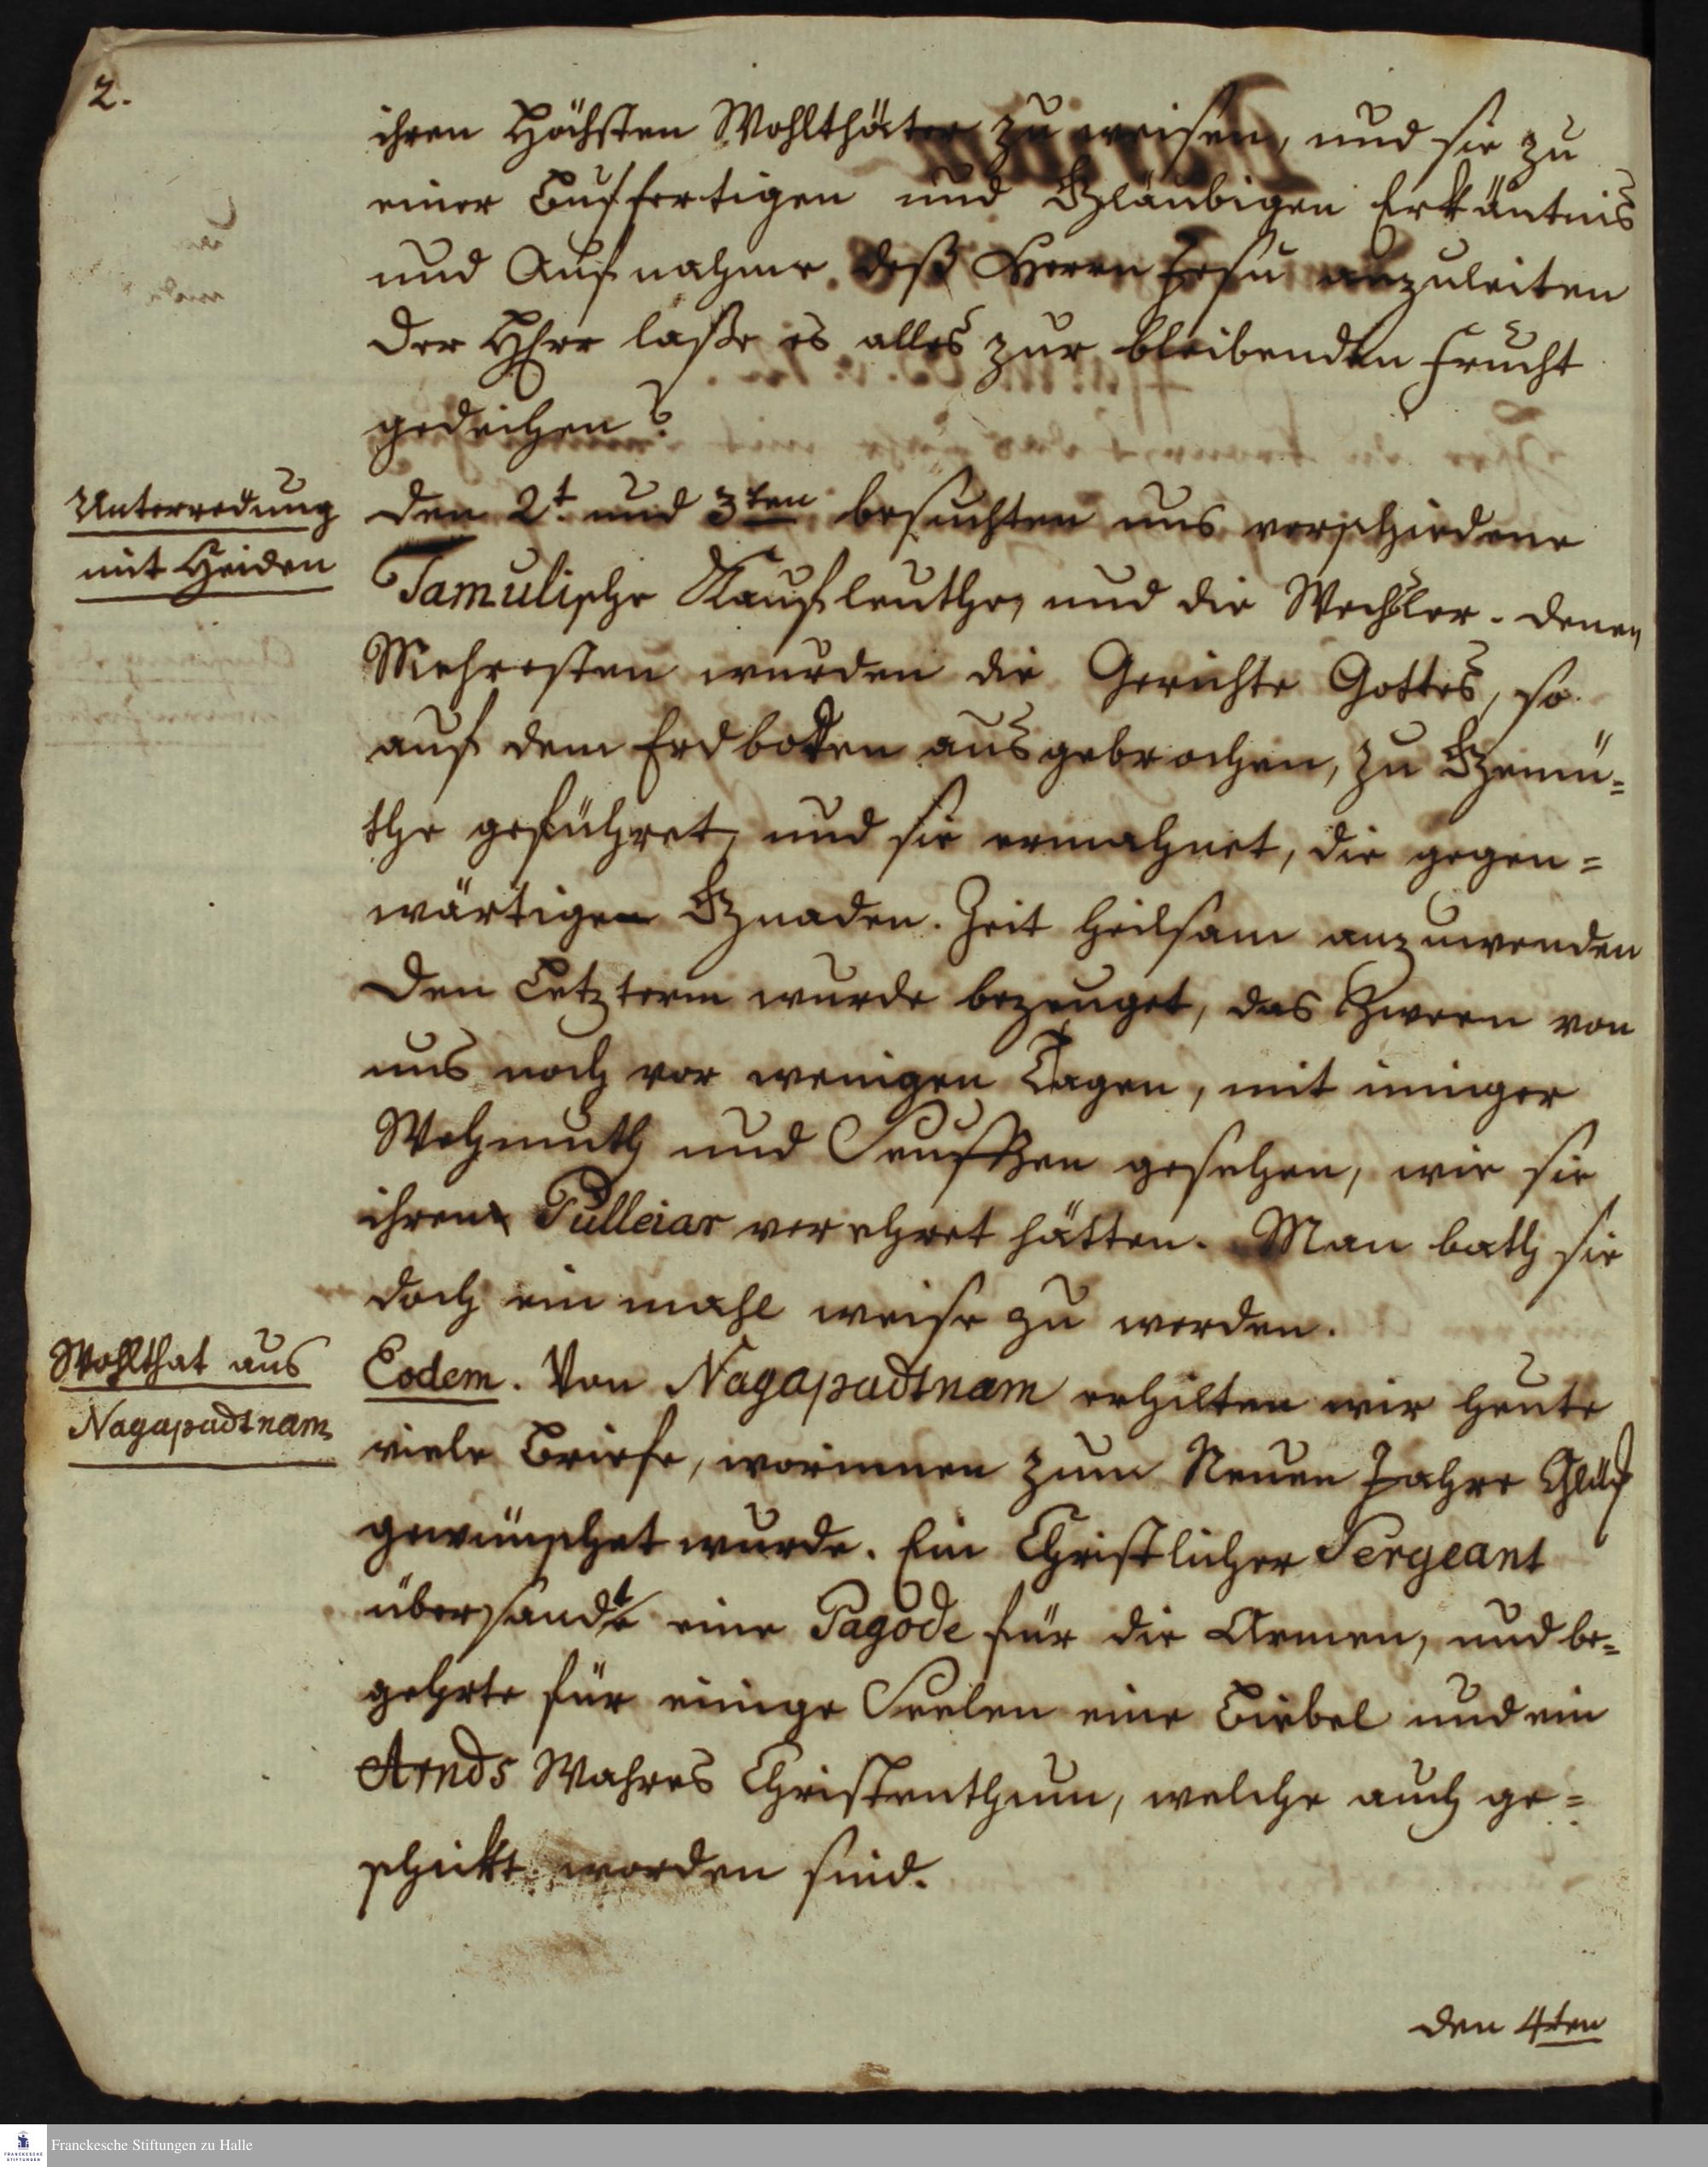 2.
ihren Höchsten Wohlthäter zu weisen, und sie zu
einer Bußfertigen und Gläubigen Erkäntnis
und Aufnahme deß Herrn Jesu anzuleiten
Der HErr laße es alles zur bleibenden Frucht
gedeihen!
Unterredung
mit Heiden
Den 2t. und 3ten besuchten uns verschiedene
Tamulische Kaufleuthe, und die Wechsler. Denen
Mehresten wurden die Gerichte Gottes, so
auf dem Erdboden ausgebrochen, zu Gemü=
the geführet, und sie ermahnet, die gegen=
wärtigen Gnaden. Zeit heilsam anzuwenden
Den Letztern wurde bezeuget, das Zween von
uns noch vor wenigen Tagen, mit inniger
Wehmuth und Seufftzen gesehen, wie sie
ihren Pulleiar verehret hätten. Man bath sie
doch ein mahl weise zu werden.
Wohlthat aus
Nagapadtnam
Eodem. Von Nagapadtnam erhilten wir heute
viele Briefe, worinnen zum Neuen Jahre Glück
gewünschet wurde. Ein Christlicher Sergeant
übersandt eine Pagode für die Armen, und be=
gehrte für einige Seelen eine Biebel und ein
Arnds Wahres Christenthum, welche auch ge=
schickt worden sind.
Den 4ten
Franckesche Stiftungen zu Halle
FRANCKESCHE
STIFTUNGEN